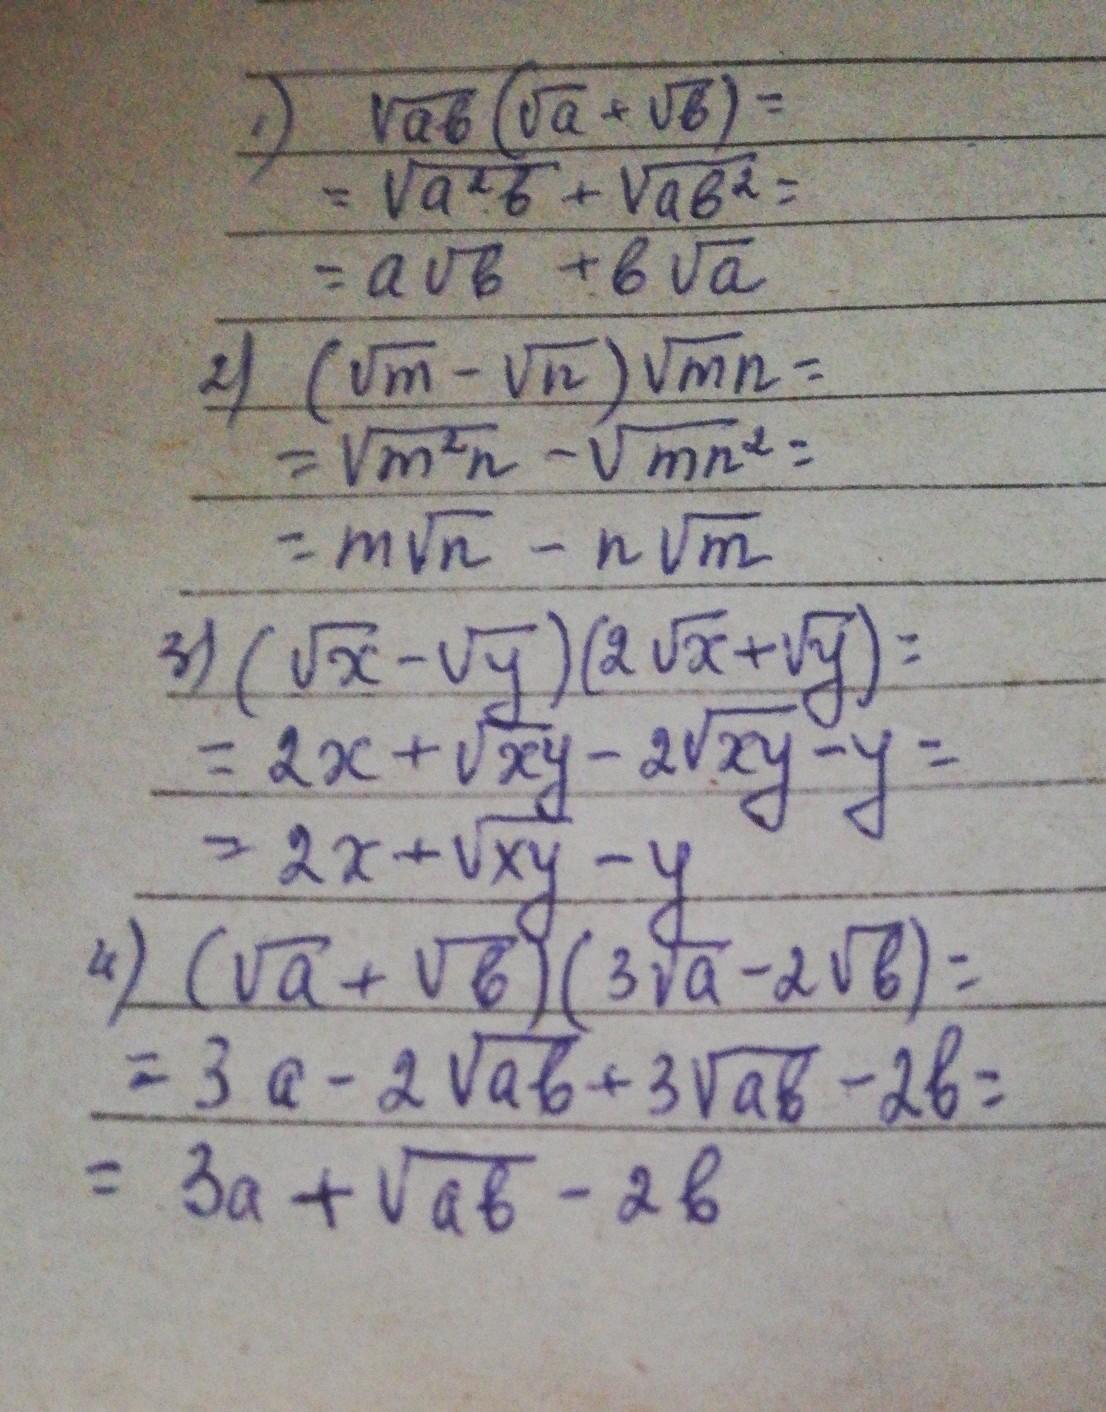 1) √ab (√a + √b) =
= √a²b + √ab² =
= a√b + b√a
2) (√m - √n) √mn =
= √m²n - √mn² =
= m√n - n√m
3) (√x - √y)(2√x + √y) =
= 2x + √xy - 2√xy - y =
= 2x + √xy - y
4) (√a + √b)(3√a - 2√b) =
= 3a - 2√ab + 3√ab - 2b =
= 3a + √ab - 2b